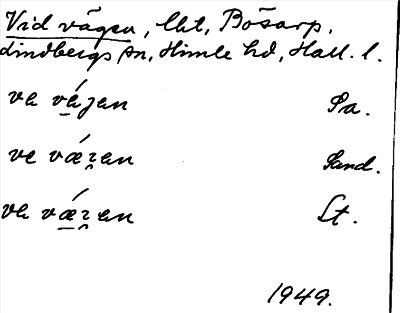 Vid vägen, lht, Bösarp,
Lindbergs sn, Himle hd, Hall. l.
va vá̱ʒan Pa.
ve vǽʒ̯an Sand.
va vǽ̱ʒ̯an Lt.
1949.